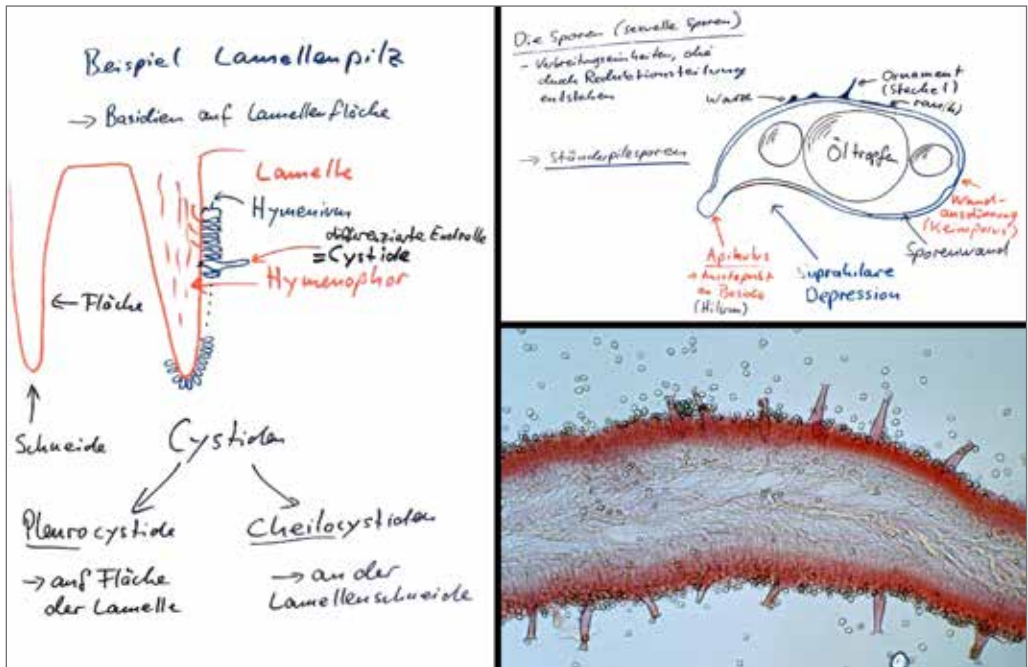 Beispiel Lamellenpilz
→ Basidien auf Lamellenfläche
Lamelle
Hymenium
differenzierte Endzelle
= Cystide
Hymenophor
← Fläche
Schneide
Cystiden
Pleurocystide
→ auf Fläche
der Lamelle
Cheilocystiden
→ an der
Lamellenschneide
Die Sporen (sexuelle Sporen)
- Verbreitungseinheiten, die
durch Reduktionsteilung
entstehen
→ Ständerpilzsporen
Warze
Ornament
(Stachel)
rau
Öltropfen
Wand-
ausdünnung
(Keimporus)
Sporenwand
Apikulus
an Basidie
(Hilum)
Suprahilare
Depression